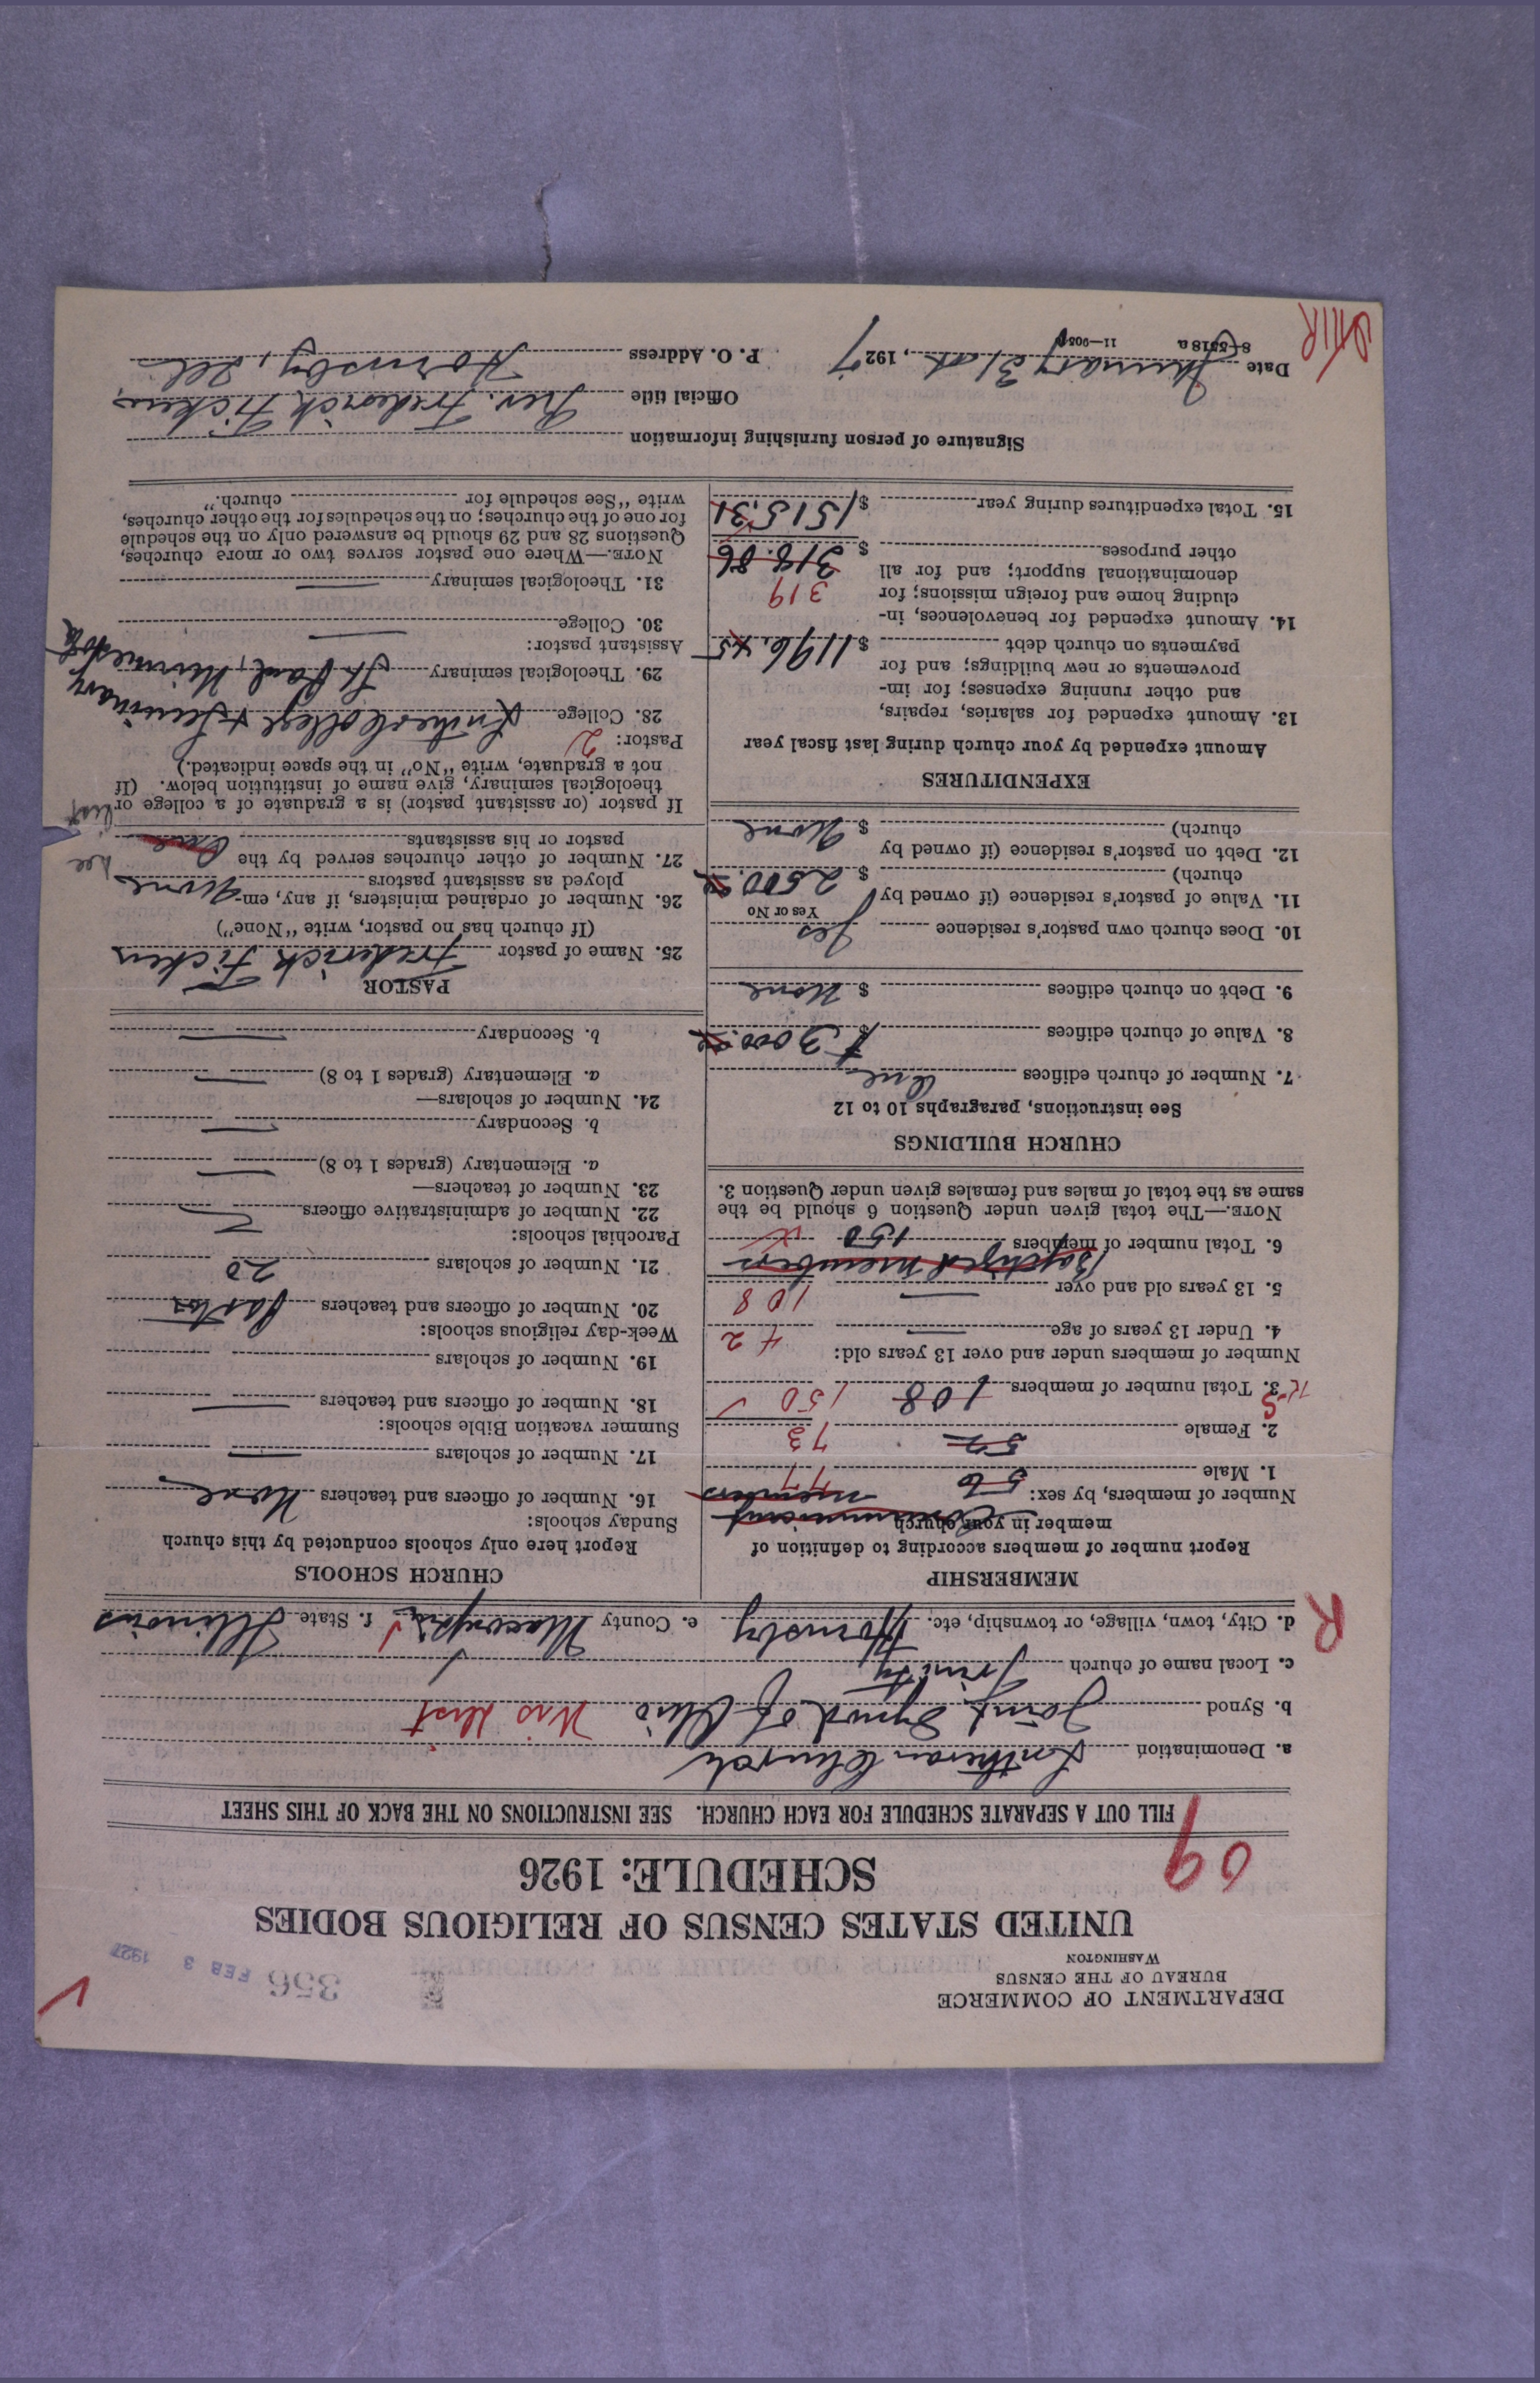 DEPARTMENT OF COMMERCE
BUREAU OF THE CENSUS
WASHINGTON
356 FEB 3 1927
UNITED STATES CENSUS OF RELIGIOUS BODIES
SCHEDULE: 1926
09
FILL OUT A SEPARATE SCHEDULE FOR EACH CHURCH. SEE INSTRUCTIONS ON THE BACK OF THIS SHEET
a. Denomination Lutheran Church
b. Synod Joint Synod of Ohio
c. Local name of church Trinity
R
d. City, town, village, or township, etc. Hornsby e. County Macoupin f. State Illinois
MEMBERSHIP
Report number of members according to definition of
member in your church Communicant
Number of members, by sex: members
1. Male 56 77
2. Female 52 73
3. Total number of members 108 150
Number of members under and over 13 years old:
4. Under 13 years of age 42
5. 13 years old and over 108
Baptized members
6. Total number of members 150
NOTE.—The total given under Question 6 should be the
same as the total of males and females given under Question 3.
CHURCH BUILDINGS
See instructions, paragraphs 10 to 12
7. Number of church edifices One
8. Value of church edifices $ 3000.
9. Debt on church edifices $ None
10. Does church own pastor's residence Yes
Yes or No
11. Value of pastor's residence (if owned by
church) $ 2500.
12. Debt on pastor's residence (if owned by
church) $ None
EXPENDITURES
Amount expended by your church during last fiscal year
13. Amount expended for salaries, repairs,
and other running expenses; for im-
provements or new buildings; and for
payments on church debt $ 1196.45
14. Amount expended for benevolences, in-
cluding home and foreign missions; for
319
denominational support; and for all
other purposes $ 318.86
15. Total expenditures during year $ 1515.31
CHURCH SCHOOLS
Report here only schools conducted by this church
Sunday schools:
16. Number of officers and teachers None
17. Number of scholars
Summer vacation Bible schools:
18. Number of officers and teachers
19. Number of scholars
Week-day religious schools:
20. Number of officers and teachers Pastor
21. Number of scholars 20
Parochial schools:
22. Number of administrative officers
23. Number of teachers—
a. Elementary (grades 1 to 8)
b. Secondary
24. Number of scholars—
a. Elementary (grades 1 to 8)
b. Secondary
PASTOR
25. Name of pastor Frederick Ficken
(If church has no pastor, write "None")
26. Number of ordained ministers, if any, em-
ployed as assistant pastors None
27. Number of other churches served by the
pastor or his assistants One
See list
If pastor (or assistant pastor) is a graduate of a college or
theological seminary, give name of institution below. (If
not a graduate, write "No" in the space indicated.)
Pastor: 2
28. College Luther College & Seminary
29. Theological seminary St. Paul, Minnesota
Assistant pastor:
30. College
31. Theological seminary
NOTE.—Where one pastor serves two or more churches,
Questions 28 and 29 should be answered only on the schedule
for one of the churches; on the schedules for the other churches,
write "See schedule for church."
Signature of person furnishing information
Official title Rev. Frederick Ficken
Date January 31st, 1927 P. O. Address Hornsby, Ill
8-5518a 11-9050